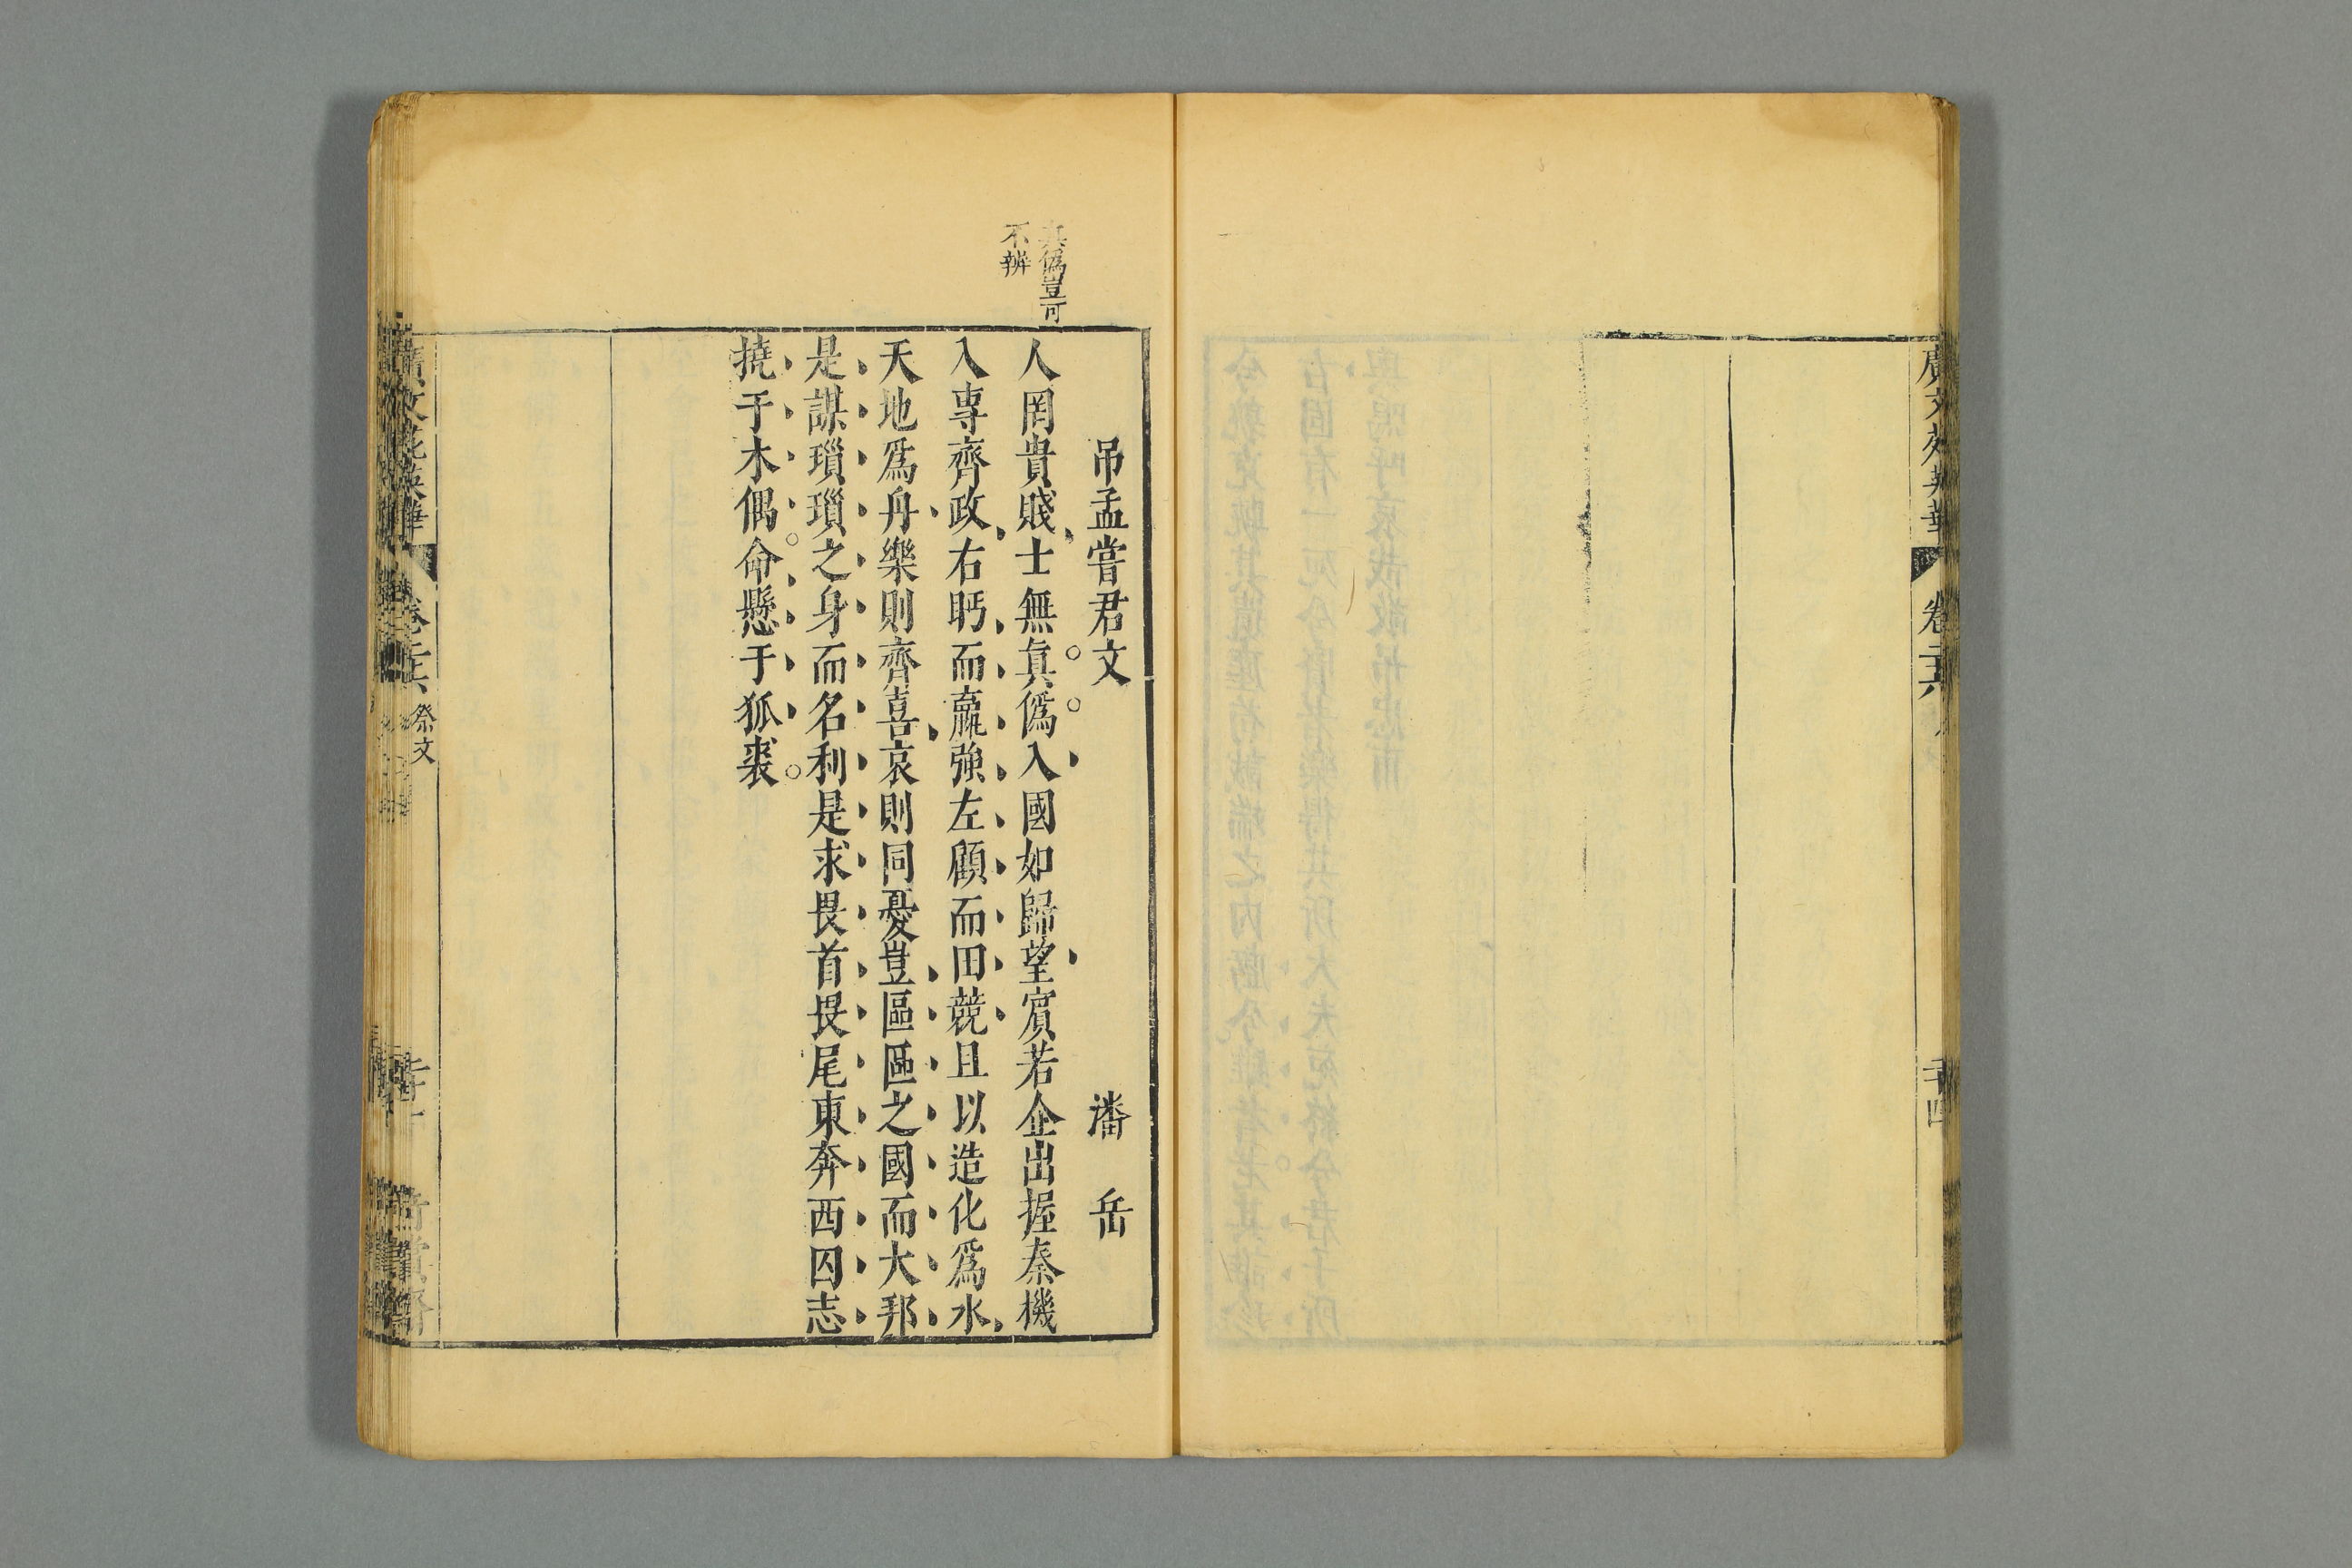 廣文苑英華
卷二六
二十四
真偽豈可
不辨
吊孟嘗君文 潘岳
人罔貴賤士無真偽入國如歸望賓若企出握秦機
入專齊政右眄而嬴強左顧而田競且以造化為水
天地為舟樂則齊喜哀則同憂豈區區之國而大邦
是謀瑣瑣之身而名利是求畏首畏尾東奔西囚志
撓于木偶命懸于狐裘
廣文苑英華
卷二六
祭文